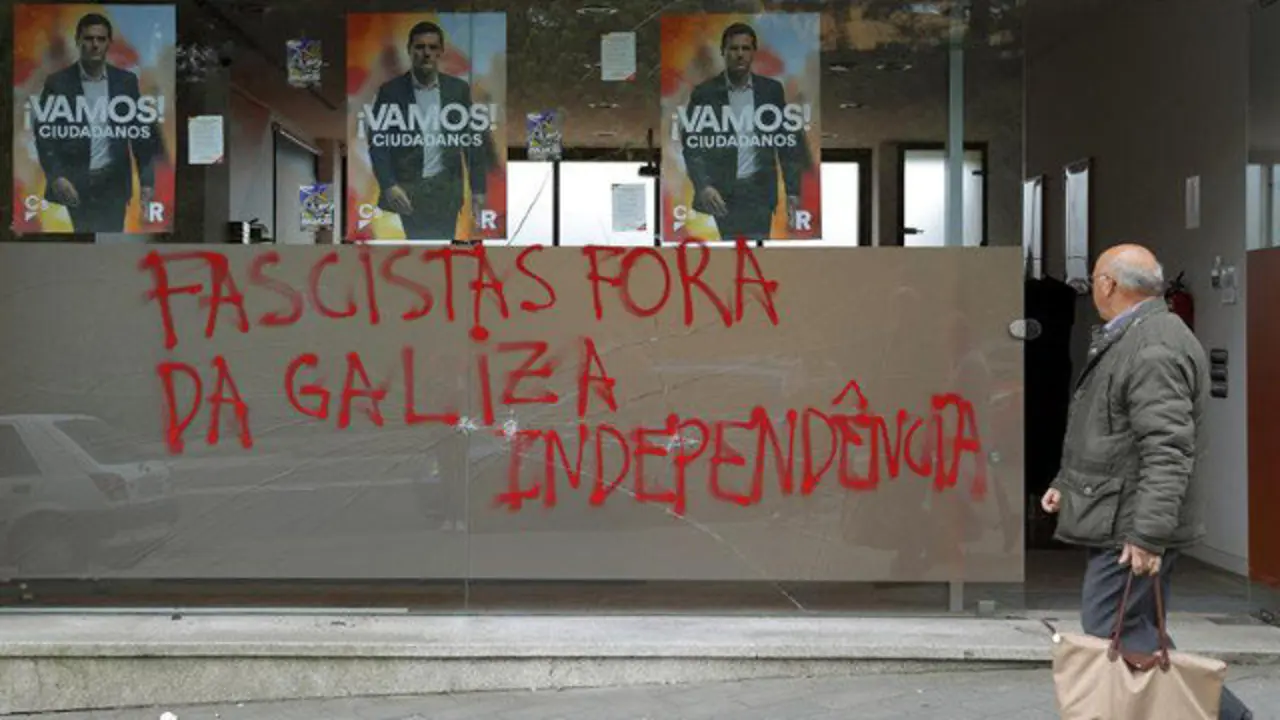 ¡VAMOS!
CIUDADANOS
Cs
R
¡VAMOS!
CIUDADANOS
R
¡VAMOS!
CIUDADANOS
R
FASCISTAS FORA
DA GALiZA
INDEPENDÊNCIA